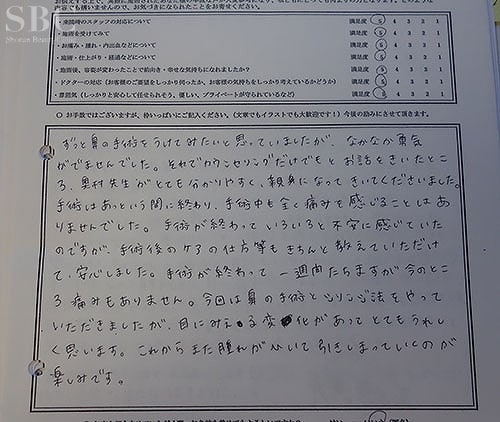 SB
内容でも構いませんので、お気づきになられたことをお書きください。
・来院時のスタッフの対応について 満足度 5 4 3 2 1
・施術を受けてみて 満足度 5 4 3 2 1
・お痛み・腫れ・内出血などについて 満足度 5 4 3 2 1
・施術・仕上がり・経過などについて 満足度 5 4 3 2 1
・施術後、容姿が変わったことで前向き・幸せな気持ちになれましたか? 満足度 5 4 3 2 1
・ドクターの対応(お客様のご要望をしっかり伺ったか、お客様の気持ちをしっかり考えているかどうか) 満足度 5 4 3 2 1
・雰囲気(しっかりと安心して任せられそう、優しい、プライベートが守られているなど) 満足度 5 4 3 2 1
○ お手数ではございますが、枠いっぱいにご記入ください。(文章でもイラストでも大歓迎です!)今後の励みにさせて頂きます。
ずっと鼻の手術をうけてみたいと思っていましたが、なかなか勇気
がでませんでした。それでカウンセリングだけでもとお話をきいたとこ
ろ、奥村先生がとても分かりやすく、親身になってきいてくださいました。
手術はあっという間に終わり、手術中も全く痛みを感じることはあ
りませんでした。手術が終わっていろいろと不安に感じていた
のですが、手術後のケアの仕方等もきちんと教えていただけ
て、安心しました。手術が終わって一週間たちますが今のとこ
ろ痛みもありません。今回は鼻の手術とシリンジ法をやって
いただきましたが、目にみえる変化があってとてもうれし
く思います。これからまた腫れがひいて引きしまっていくのが
楽しみです。